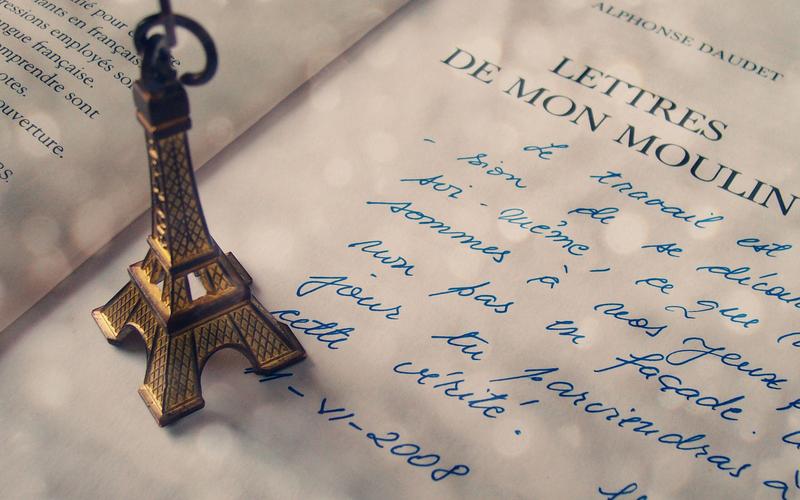 ié pour
ants en français
ressions employés so
ngue française.
omprendre sont
otes.
ouverture.
rs.
ALPHONSE DAUDET
LETTRES
DE MON MOULIN
Le travail est
- sion de se décou
soi-même, ce que
sommes à nos yeux
non pas en façade.
jour tu parviendras à
cette vérité.
11-VI-2008